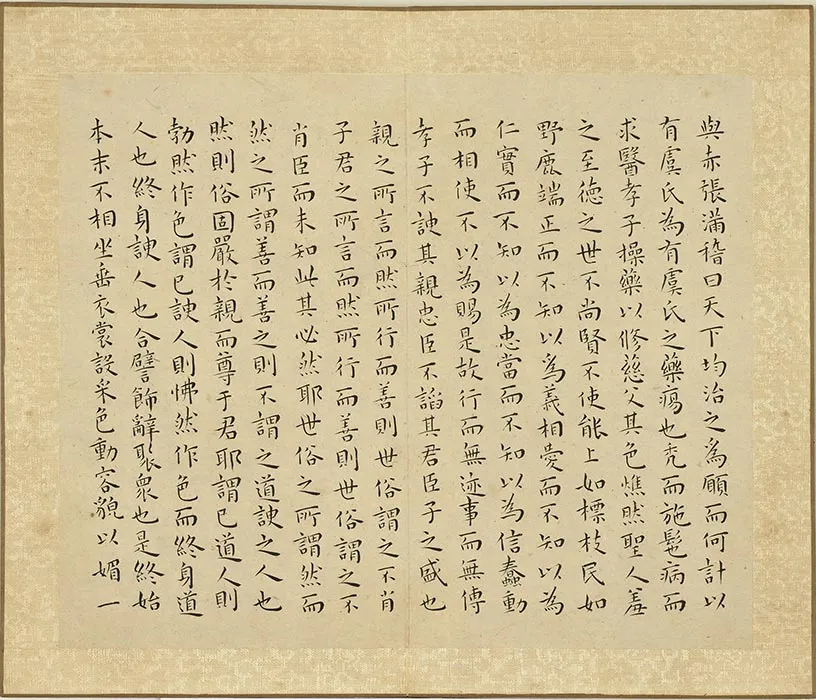 與赤張滿稽曰天下均治之爲願而何計以
有虞氏為有虞氏之藥瘍也禿而施髢病而
求醫孝子操藥以修慈父其色燋然聖人羞
之至德之世不尚賢不使能上如標枝民如
野鹿端正而不知以爲義相愛而不知以爲
仁實而不知以為忠當而不知以為信蠢動
而相使不以為賜是故行而無迹事而無傳
孝子不諛其親忠臣不諂其君臣子之盛也
親之所言而然所行而善則世俗謂之不肖
子君之所言而然所行而善則世俗謂之不
肖臣而未知此其必然耶世俗之所謂然而
然之所謂善而善之則不謂之道諛之人也
然則俗固嚴於親而尊于君耶謂己道人則
勃然作色謂己諛人則怫然作色而終身道
人也終身諛人也合譬飾辭聚衆也是終始
本末不相坐垂衣裳設采色動容貌以媚一